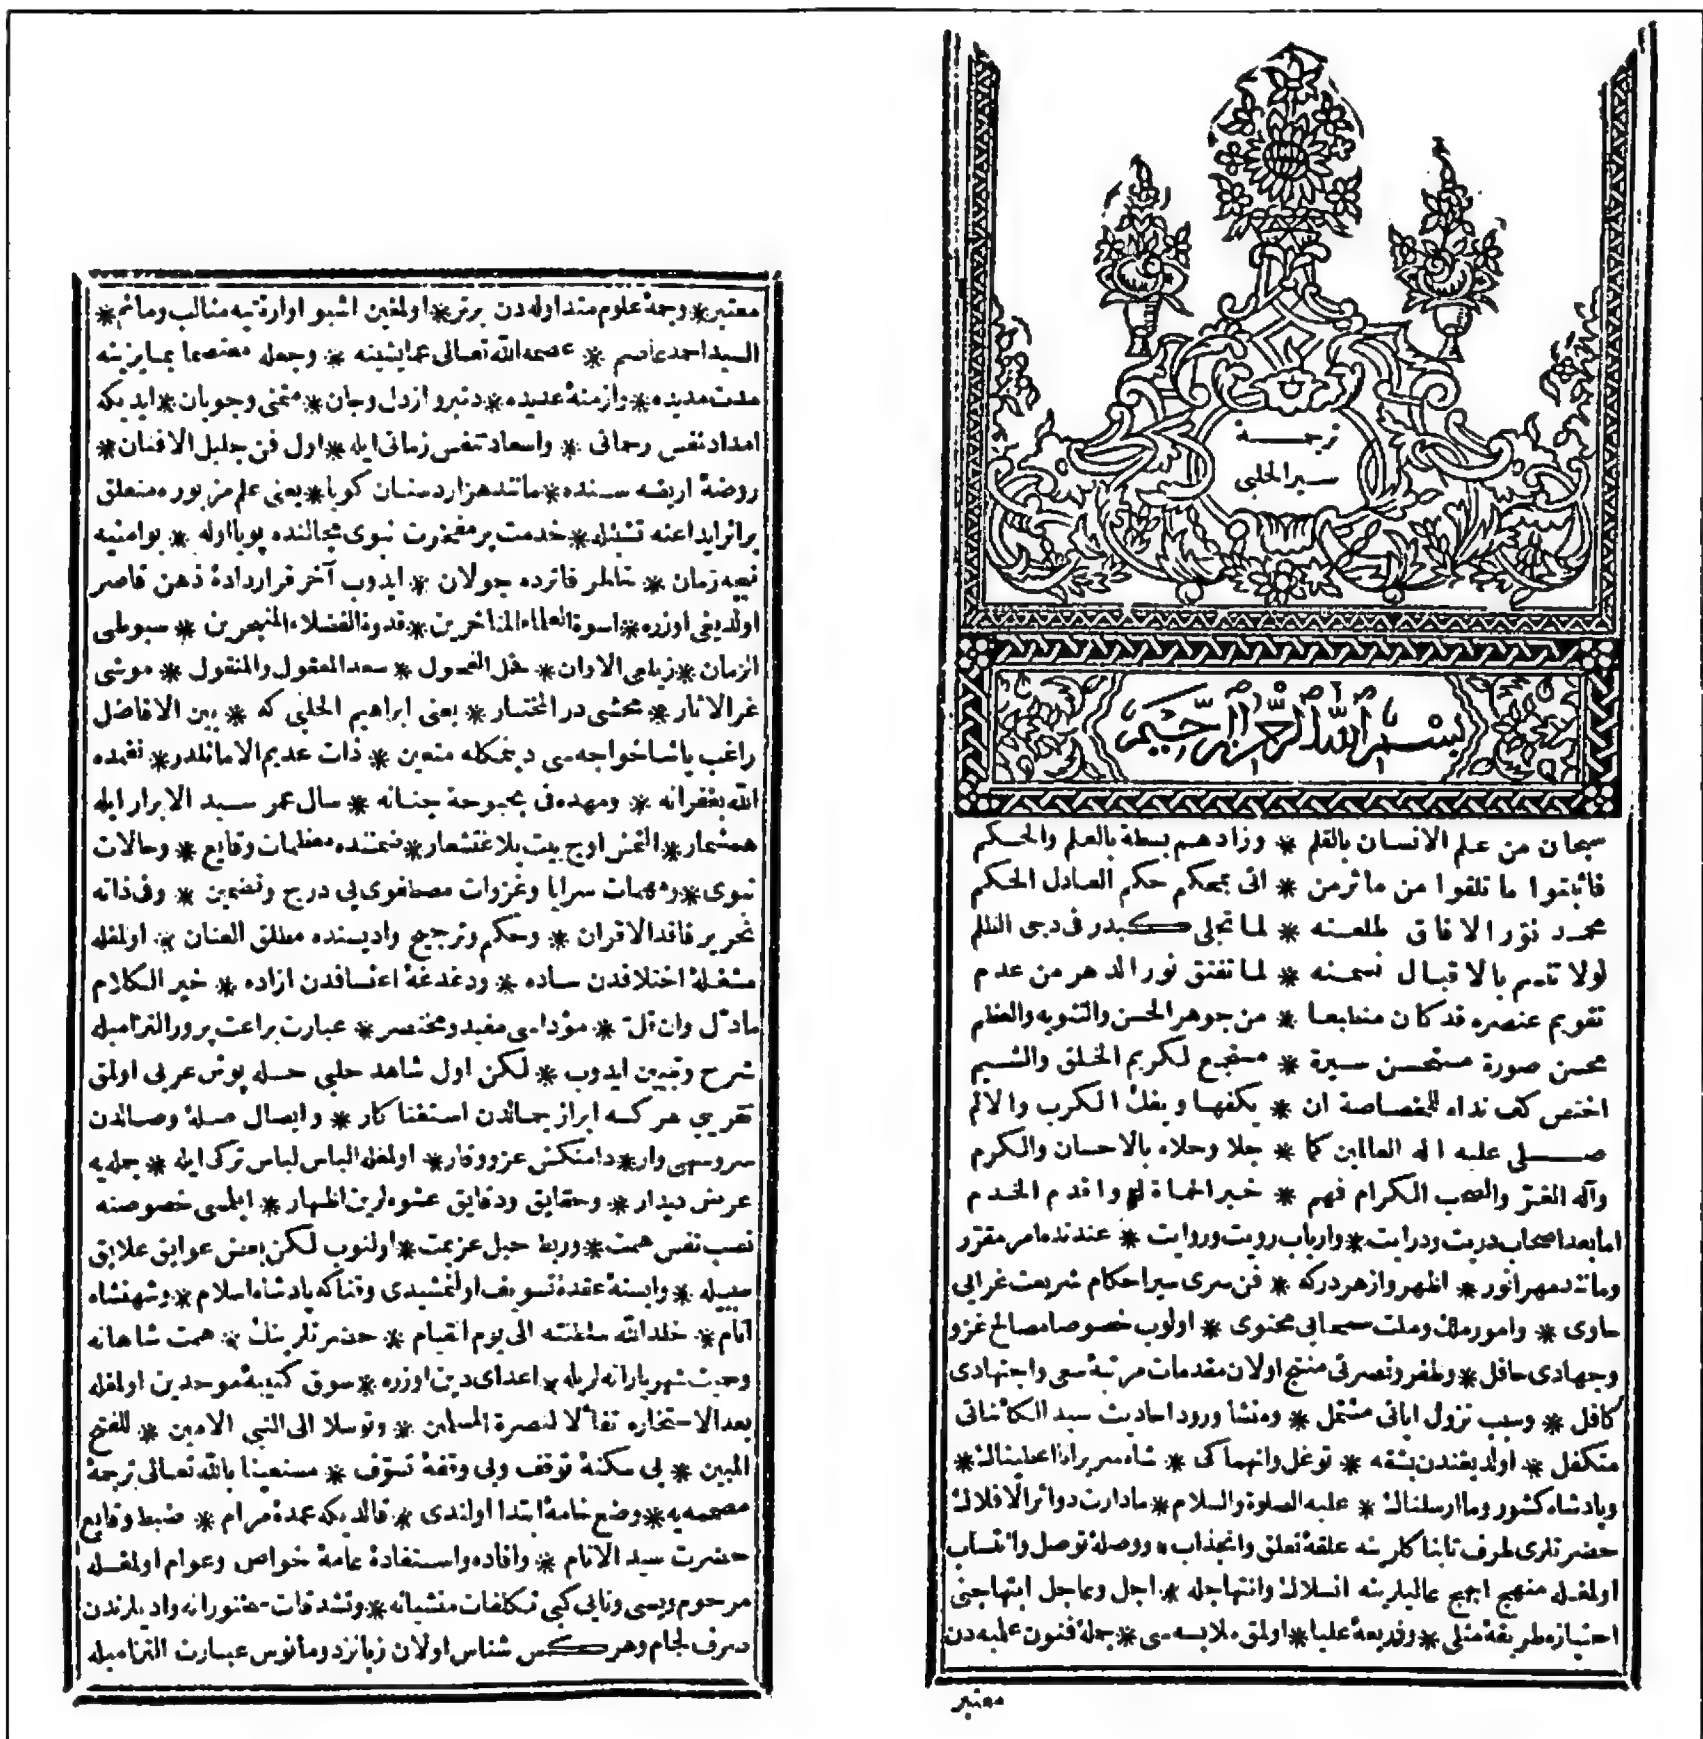 ترجمة
سيرالحلبى
بسم الله الرحمن الرحيم
سبحان من علم الانسان بالقلم * وزادهم بسطة بالعلم والحكم
فأتبقوا ما تلقوا من مآثر من * اتى بمحكم حكم العادل الحكم
محمد نور الافاق طلعته * لما تجلى كبدر فى دجى الظلم
لولا تاسم بالاقبال نسمته * لما تفتق نور الدهر من عدم
تقويم عنصره قد كان منطبعا * من جوهر الحسن والتنويه والعظم
محسن صورة مستحسن سيرة * مستجمع لكريم الخلق والشيم
اختص كف نداه للخصاصة ان * يكفها ويفك الكرب والالم
صلى عليه اله العالمين كما * جلا وحلاه بالاحسان والكرم
وآله الغر والصحب الكرام فهم * خير الحماة له واقدم الخدم
امابعد اصحاب دريت ودرايت * وارباب رويت وروايت * عندنده امر مقرر
ومانند مهرانور * اظهر وازهردركه * فن سرى سير احكام شريعت غرايى
حاوى * وامور ملك وملت سمحايى محتوى * اولوب خصوصا مصالح غزو
وجهادى حافل * وظفر ونصرتى منتج اولان مقدمات مرتبۀ سعى واجتهادى
كافل * وسبب نزول اياتى مشتمل * ومنشأ ورود احاديث سيد الكائناتى
متكفل * اولديغندن بشقه * توغل وانهماكى * شاه سرير انا اعطيناك *
وپادشاه كشور وما ارسلناك * عليه الصلوة والسلام * مادارت دوائر الافلاك
حضرتلرى طرف تابناكلرينه علقۀ تعلق وانجذاب * ووصلۀ توصل وانتساب
اولمغله منهج ابهج عاليلرينه انسلاك وانتهاجله * اجل وعاجل ابتهاجنى
احتيازه طريقۀ مثلى * وذريعۀ عليا * اولمق ملابسه سى * جملۀ فنون علميه دن
معتبر
معتبر * وجملۀ علوم متداوله دن برتر * اولمغين اشبو اوارۀ تيه مثالب ومآثم *
السيد احمد عاصم * عصمه الله تعالى عما يشينه * وجعله معتصما بما يزينه
مدت مديده * وازمنۀ عديده * دنبرو ازدل وجان * متمنى وجويان * ايديكه
امداد نفس رحمانى * واسعاد تنفس زمانى ايله * اول فن جليل الافنان *
روضۀ اريضه سنده * مانند هزاردستان كويا * يعنى علم مزبوره متعلق
براثر ايداعنه تشبثله * خدمت پرمفخرت نبوى مجالنده پويا اوله * بو امنيه
نيجه زمان * خاطر فاترده جولان * ايدوب آخر قراردادۀ ذهن قاصر
اولديغى اوزره * اسوة العلماء المتأخرين * قدوة الفضلاء المتبحرين * سيوطى
الزمان * زيلعى الاوان * فحل الفحول * سعد المعقول والمنقول * موشى
غرالاثار * محشى درالمختار * يعنى ابراهيم الحلبى كه * بين الافاضل
راغب پاشا خواجه سى ديمكله متعين * ذات عديم الامثالدر * تغمده
الله بغفرانه * ومهده فى بحبوحة جنانه * سال عمر سيد الابرار ايله
همشمار * التمش اوج بيت بلاغتشعار * ضمننده معظمات وقايع * وحالات
نبوى * ومهمات سرايا وغزوات مصطفوى يى درج وتضمين * وفى ذاته
تحرير فاقد الاقران * وحكم وترجيح واديسنده مطلق العنان * اولمغله
مشغلۀ اختلافدن ساده * ودغدغۀ اعتسافدن ازاده * خير الكلام
مادل وان قل * مؤداسى مفيد ومختصر * عبارت براعت پرور التزاميله
شرح وتبيين ايدوب * لكن اول شاهد حلبى حله پوش عربى اولمق
تقريبى هركسه ابراز جمالدن استغنا كار * وايصال صلۀ وصالدن
سروسهى وار * دامنكش عز ووقار * اولمغله الباس لباس تركى ايله * جمله يه
عرض ديدار * وحقايق ودقايق عشوه لرين اظهار * ايلمسى خصوصنه
نصب نفس همت * وربط حبل عزيمت * اولنوب لكن بعض عوايق علايق
سببيله * وابستۀ عقدۀ تسويف اولنمشيدى وقتاكه پادشاه اسلام * وشهنشاه
انام * خلد الله سلطنته الى يوم القيام * حضرتلرينك * همت شاهانه
وحميت شهريارانه لريله * اعداى دين اوزره * سوق كتيبۀ موحدين اولمغله
بعد الاستخاره تفألا لنصرة المسلمين * وتوسلا الى النبى الامين * للفتح
المبين * بى سكتۀ توقف وبى وقفۀ تسوف * مستعينا بالله تعالى ترجمۀ
مصممه يه * وضع خامۀ ابتدا اولندى * قالديكه عمدۀ مرام * ضبط وقايع
حضرت سيد الانام * وافاده واستفادۀ عامۀ خواص وعوام اولمغله
مرحوم ويسى ونابى كبى تكلفات منشيانه * وتشدقات هنرورانه واديلرندن
صرف لجام وهركس شناس اولان زبانزد ومأنوس عبارت التزاميله